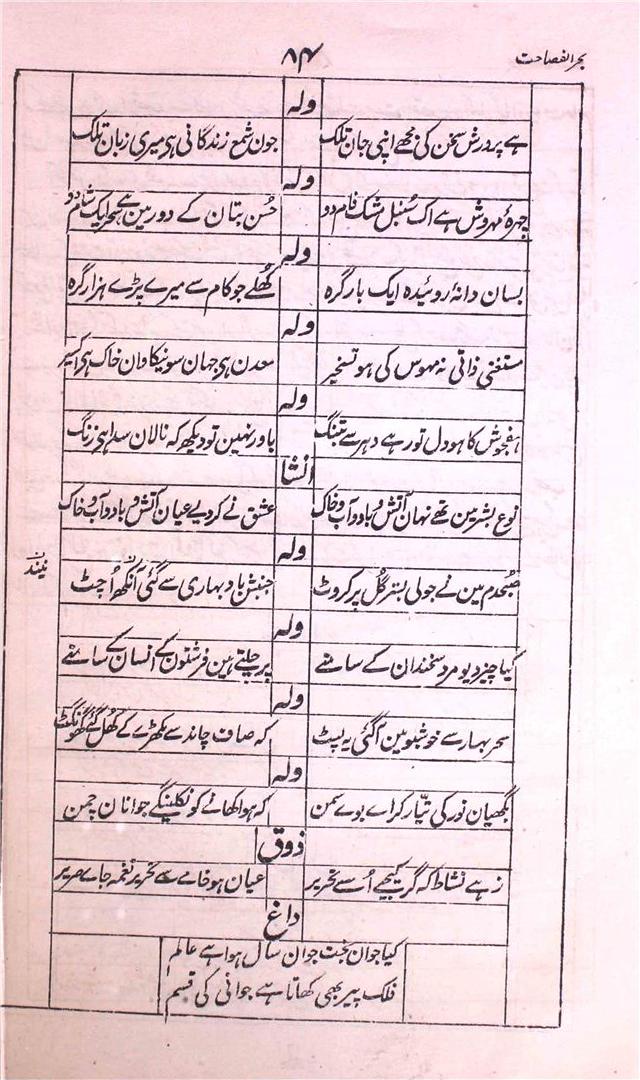 بحر الفصاحت
۸۴
ولہ
ہے پرورش سخن کی مجھے اپنی جان تلک جون شمع زندگانی ہی میری زبان تلک
ولہ
چہرۂ مہروش ہے اک سُنبل مشک فام دو حُسن بتان کے دور مین ہے سحر ایک شام دو
ولہ
بسان دانۂ روئیدہ ایک بار گرہ کُھلے جو کام سے میرے پڑے ہزار گرہ
ولہ
مستغنیٔ ذاتی نہ مہوس کی ہو تسخیر معدن ہی جہان سونیکا وان خاک ہی اکسیر
ولہ
ہمجوش کا ہو دل تو رہے دہر سے تنگ باور نہین تو دیکھ کہ نالان سدا ہی زنگ
انشا
نوع بشر مین تھے نہان آتش و باد و آب و خاک عشق نے کر دیے عیان آتش و باد و آب و خاک
ولہ
صبحدم مین نے جو لی بستر گُل پر کروٹ جنبش باد بہاری سے گئی آنکھ اُچٹ
نیند
ولہ
کیا چیز دیو مرد سخندان کے سامنے پر جلتے ہین فرشتون کے انسان کے سامنے
ولہ
سحر بہار سے خوشبو مین آگئی یہ لپٹ کہ صاف چاند سے مکھڑے کے کُھل گئے گھونگٹ
ولہ
بگھیان نور کی تیّار کر اے بوے سمن کہ ہوا کھانے کو نکلینگے جوانان چمن
ذوق
زہے نشاط کہ گر کیجیے اُسے تحریر عیان ہو خامے سے تحریر نغمہ جاے صریر
داغ
کیا جوان بخت جوان سال ہوا ہے عالم
فلک پیر بھی کھاتا ہے جوانی کی قسم